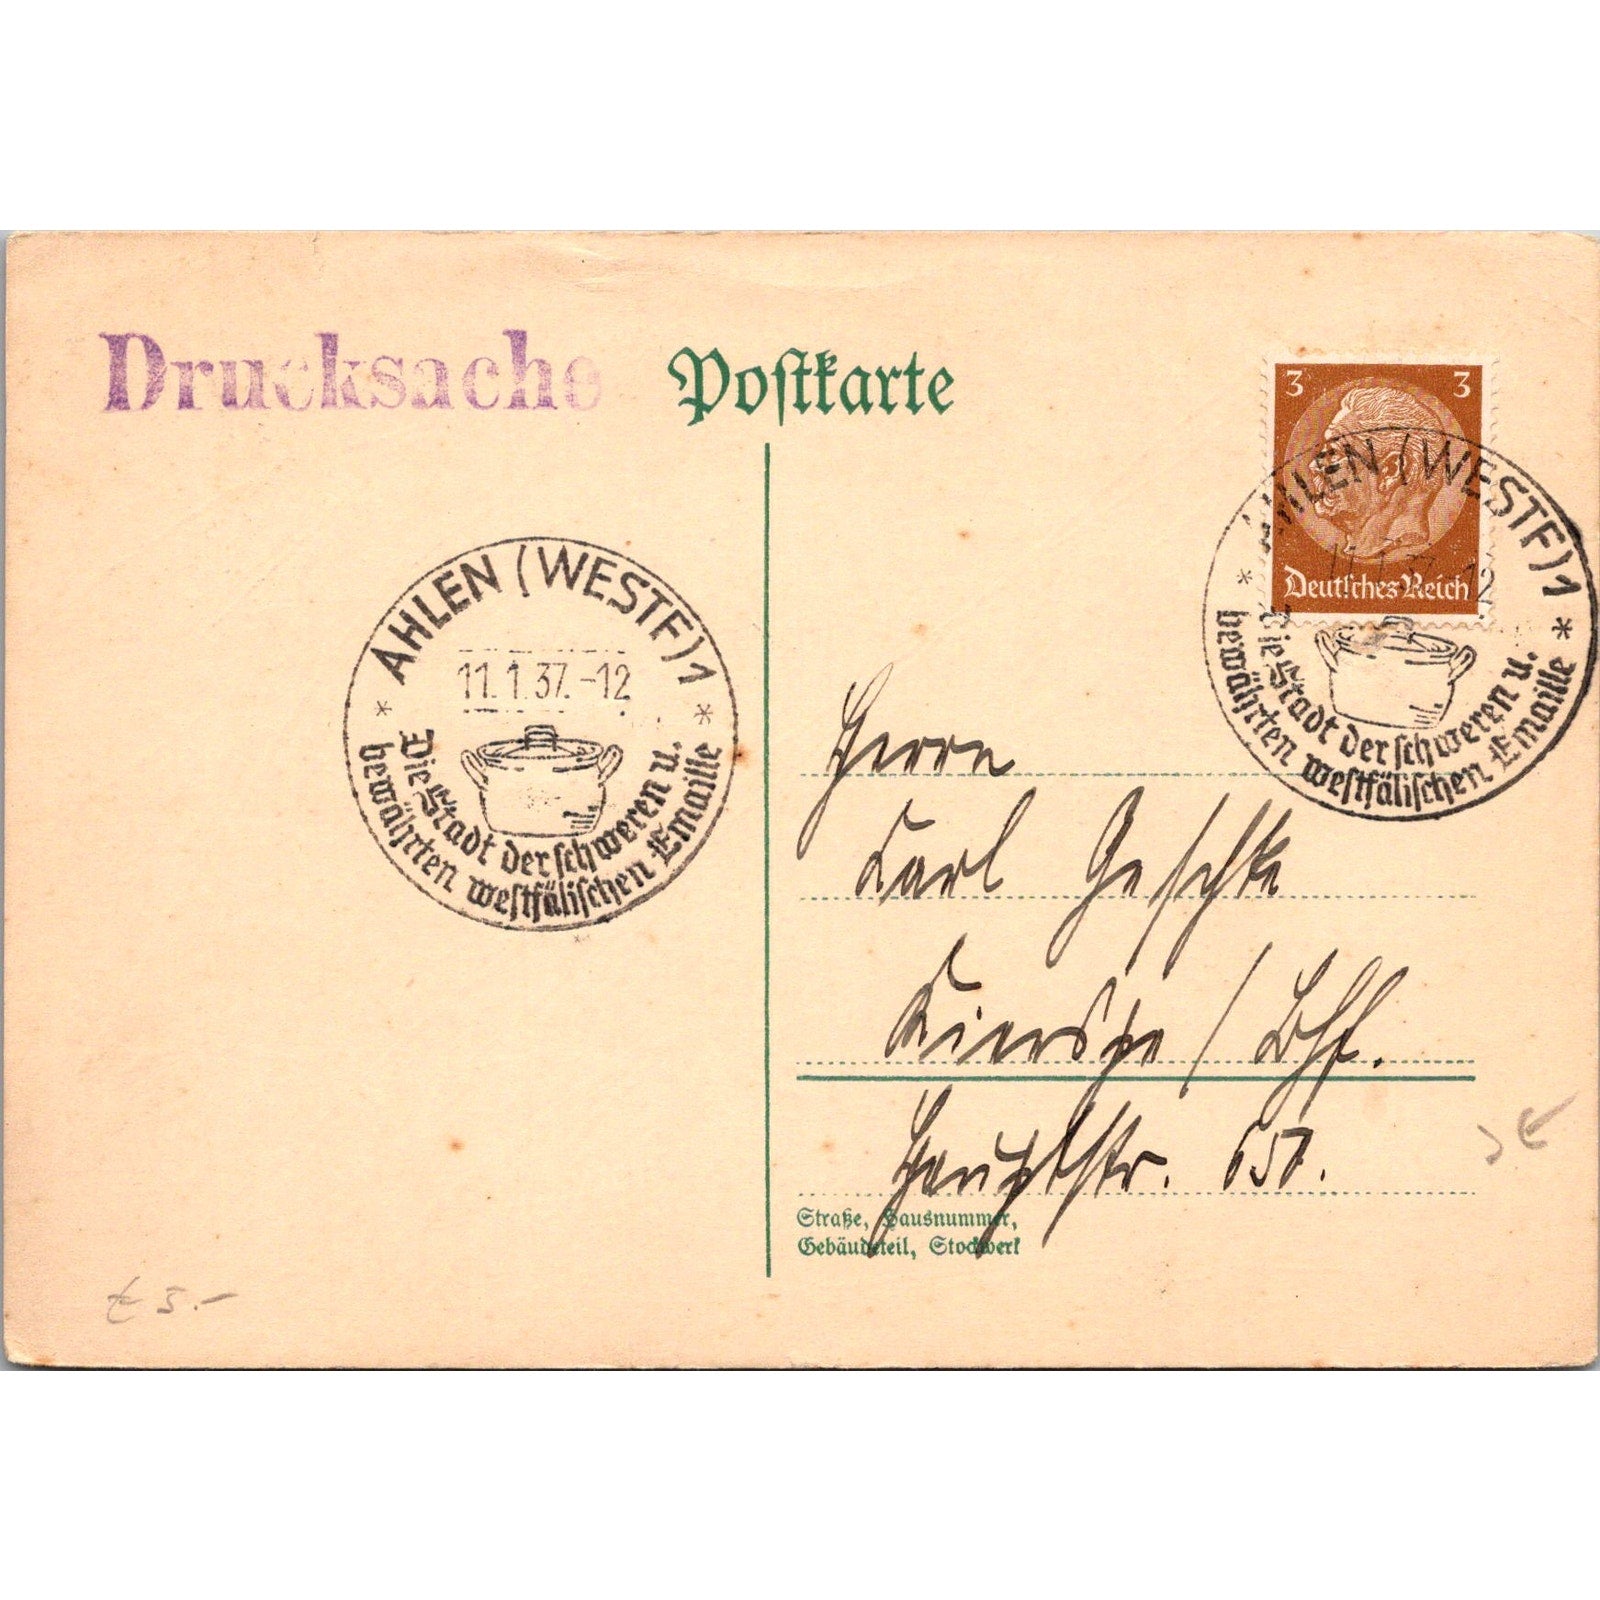 Drucksache
Postkarte
3 3
Deutsches Reich
AHLEN (WESTF) 1
11.1.37.-12
* *
Die Stadt der schweren u.
bewährten westfälischen Emaille
AHLEN (WESTF) 1
11.1.37.-12
* *
Die Stadt der schweren u.
bewährten westfälischen Emaille
Herrn
Karl Geschke
Kierspe / Bhf.
Hauptstr. 657.
Straße, Hausnummer,
Gebäudeteil, Stockwerk
5.-